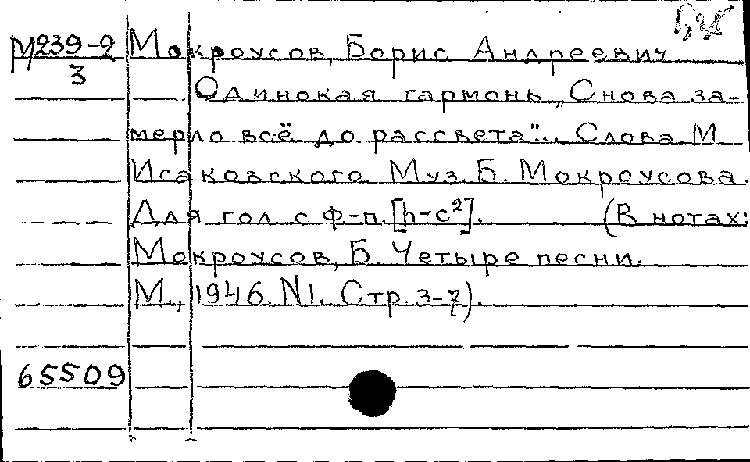 М239-2 Мокроусов, Борис Андреевич
3
Одинокая гармонь „Снова за-
мерло всё до рассвета"... Слова М.
Исаковского Муз. Б. Мокроусова.
Для гол с ф-п. [h-c²]. (В нотах:
Мокроусов, Б. Четыре песни.
М., 1946. N1. Стр. 3-7).
65509